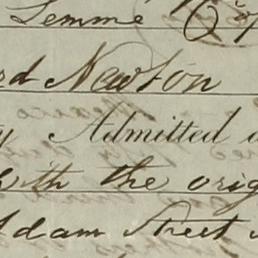 Lemmé
rd Newton
y Admitted a
with the orig
Adam Street